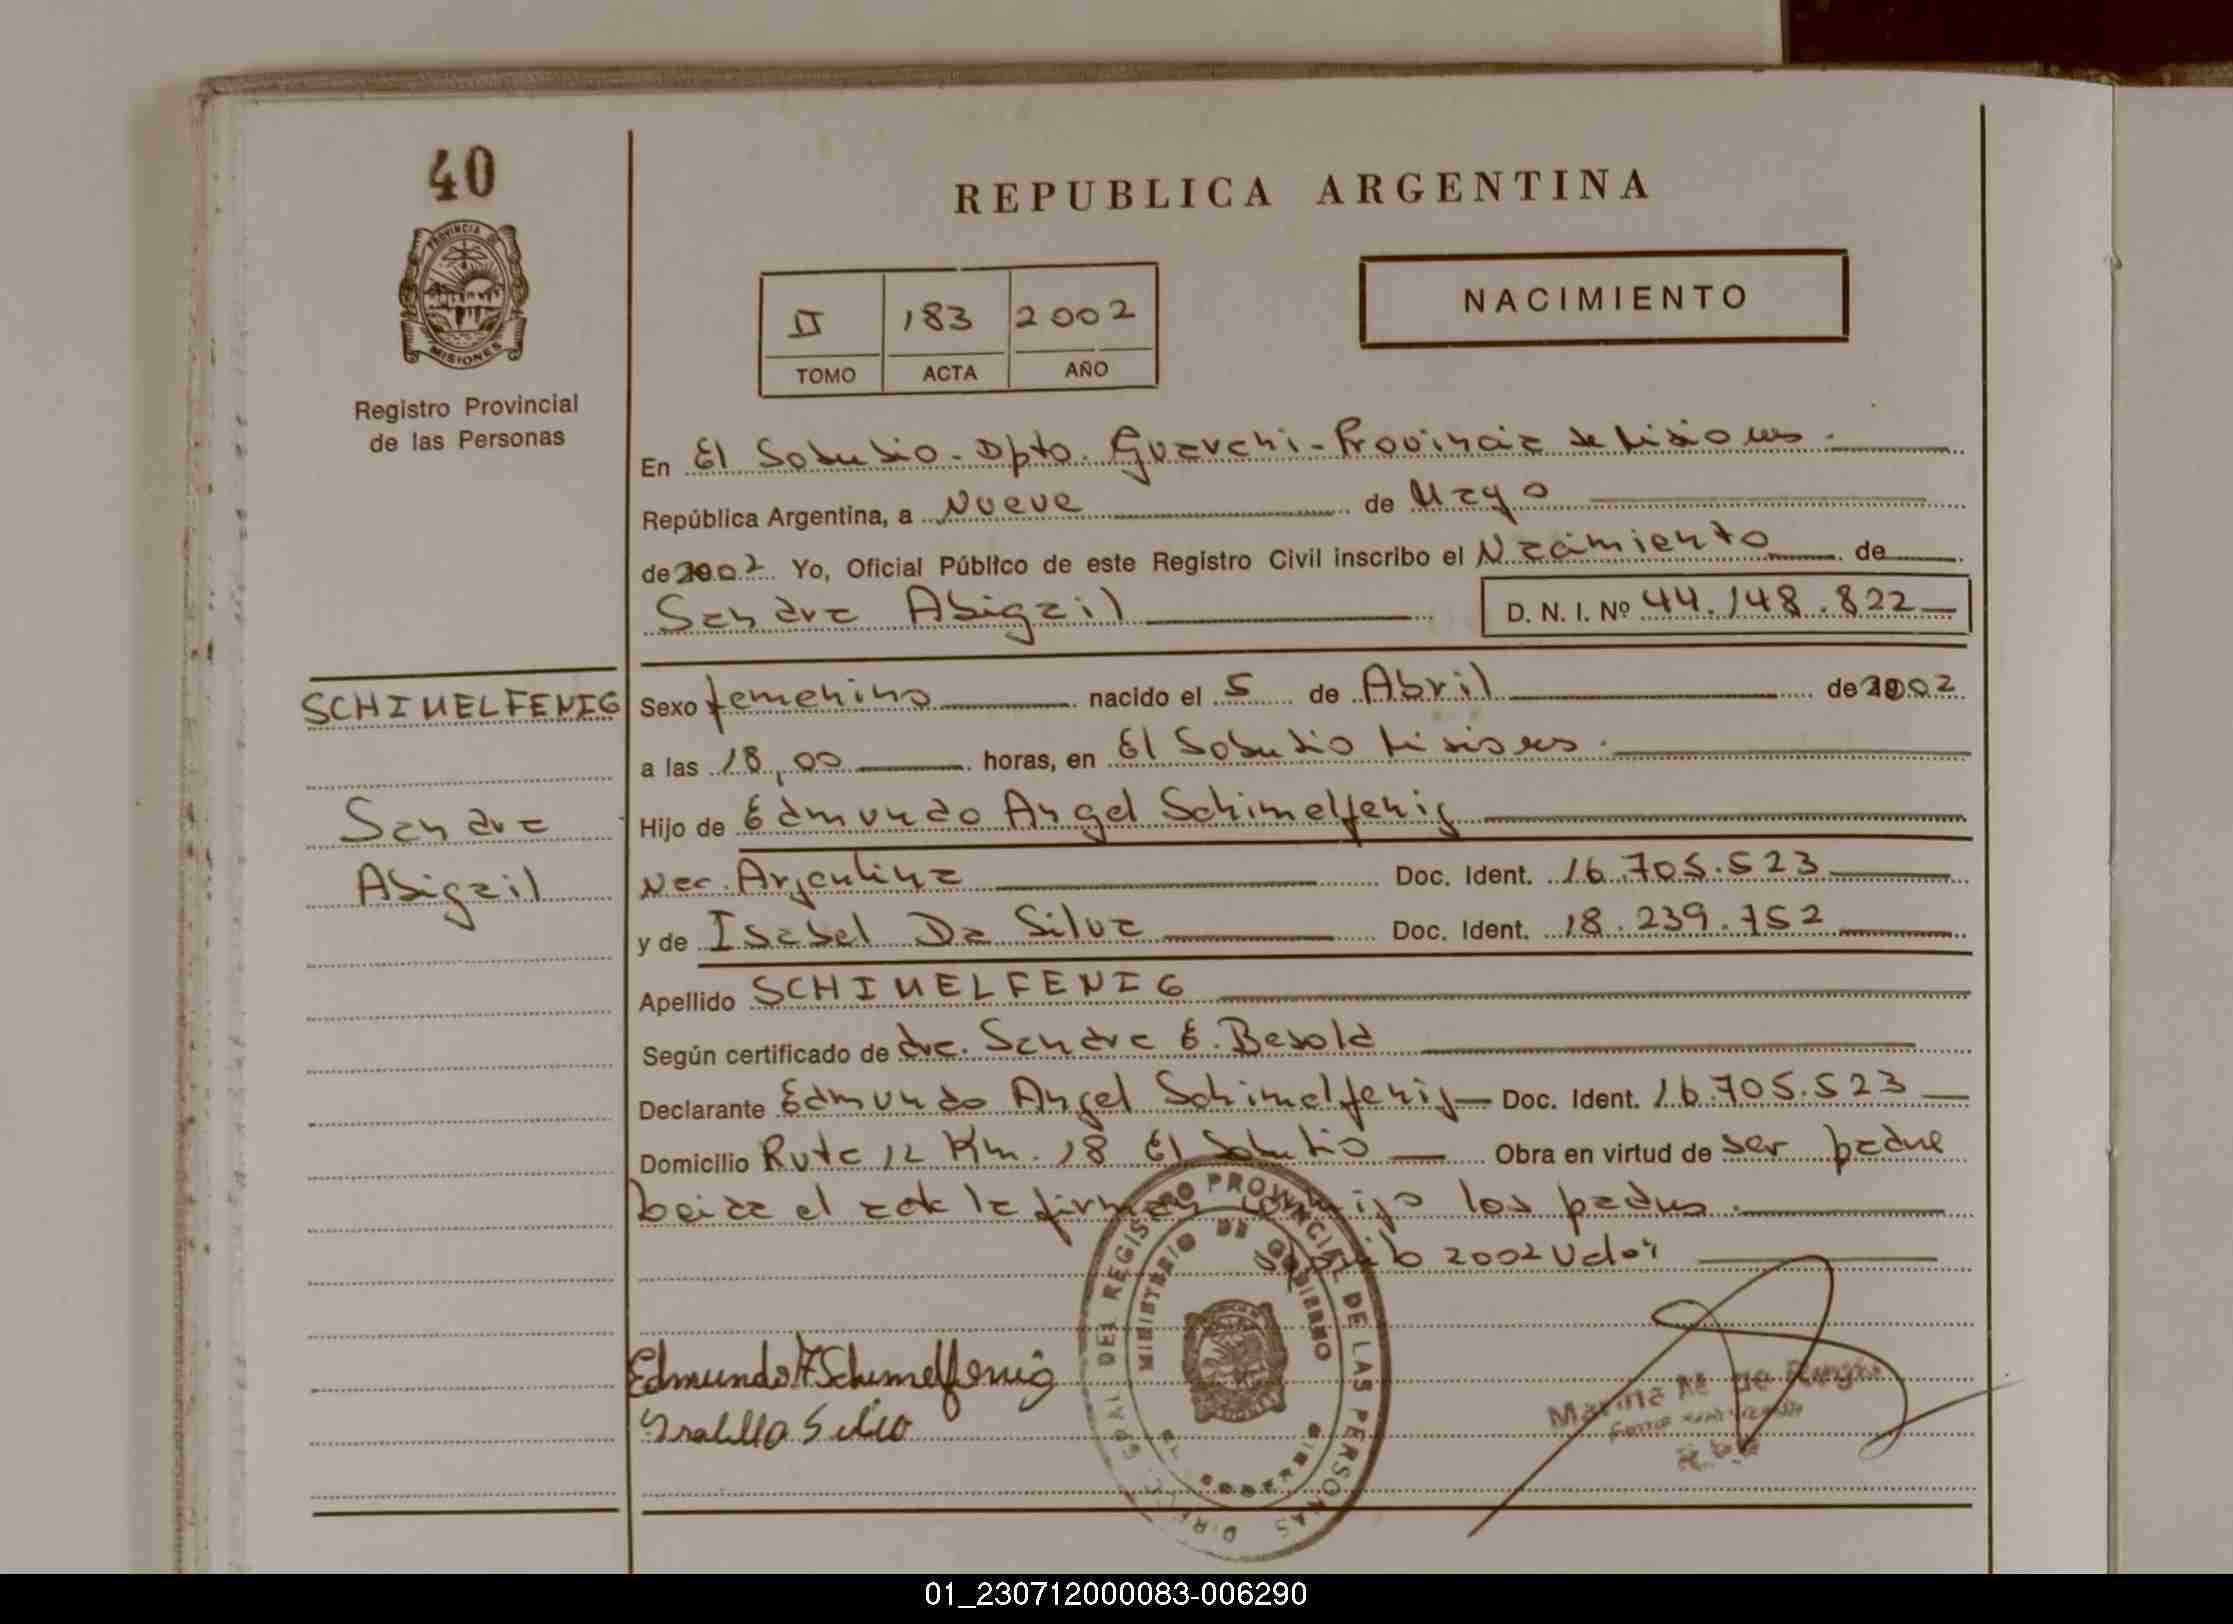 40
PROVINCIA DE
MISIONES
Registro Provincial
de las Personas
REPUBLICA ARGENTINA
II 183 2002
TOMO ACTA AÑO
NACIMIENTO
En El Soberbio - Dpto. Guarani - Provincia de Misiones.
República Argentina, a Nueve de Mayo
de 2002 Yo, Oficial Público de este Registro Civil inscribo el Nacimiento de
Sandra Abigail D. N. I. Nº 44.148.822
SCHIMELFENIG
Sandra
Abigail
Sexo femenino nacido el 5 de Abril de 2002
a las 18,00 horas, en El Soberbio Misiones.
Hijo de Edmundo Angel Schimelfenig
Nac. Argentina Doc. Ident. 16.705.523
y de Isabel Da Silva Doc. Ident. 18.239.752
Apellido SCHIMELFENIG
Según certificado de dra. Sandra E. Besold
Declarante Edmundo Angel Schimelfenig Doc. Ident. 16.705.523
Domicilio Ruta 12 Km. 18 El Soberbio Obra en virtud de ser padre
Leida el acta la firman conmigo los padres.
2002
Edmundo A Schimelfenig
DEL REGISTRO PROVINCIAL DE LAS PERSONAS
MINISTERIO DE GOBIERNO
Marina
01_230712000083-006290